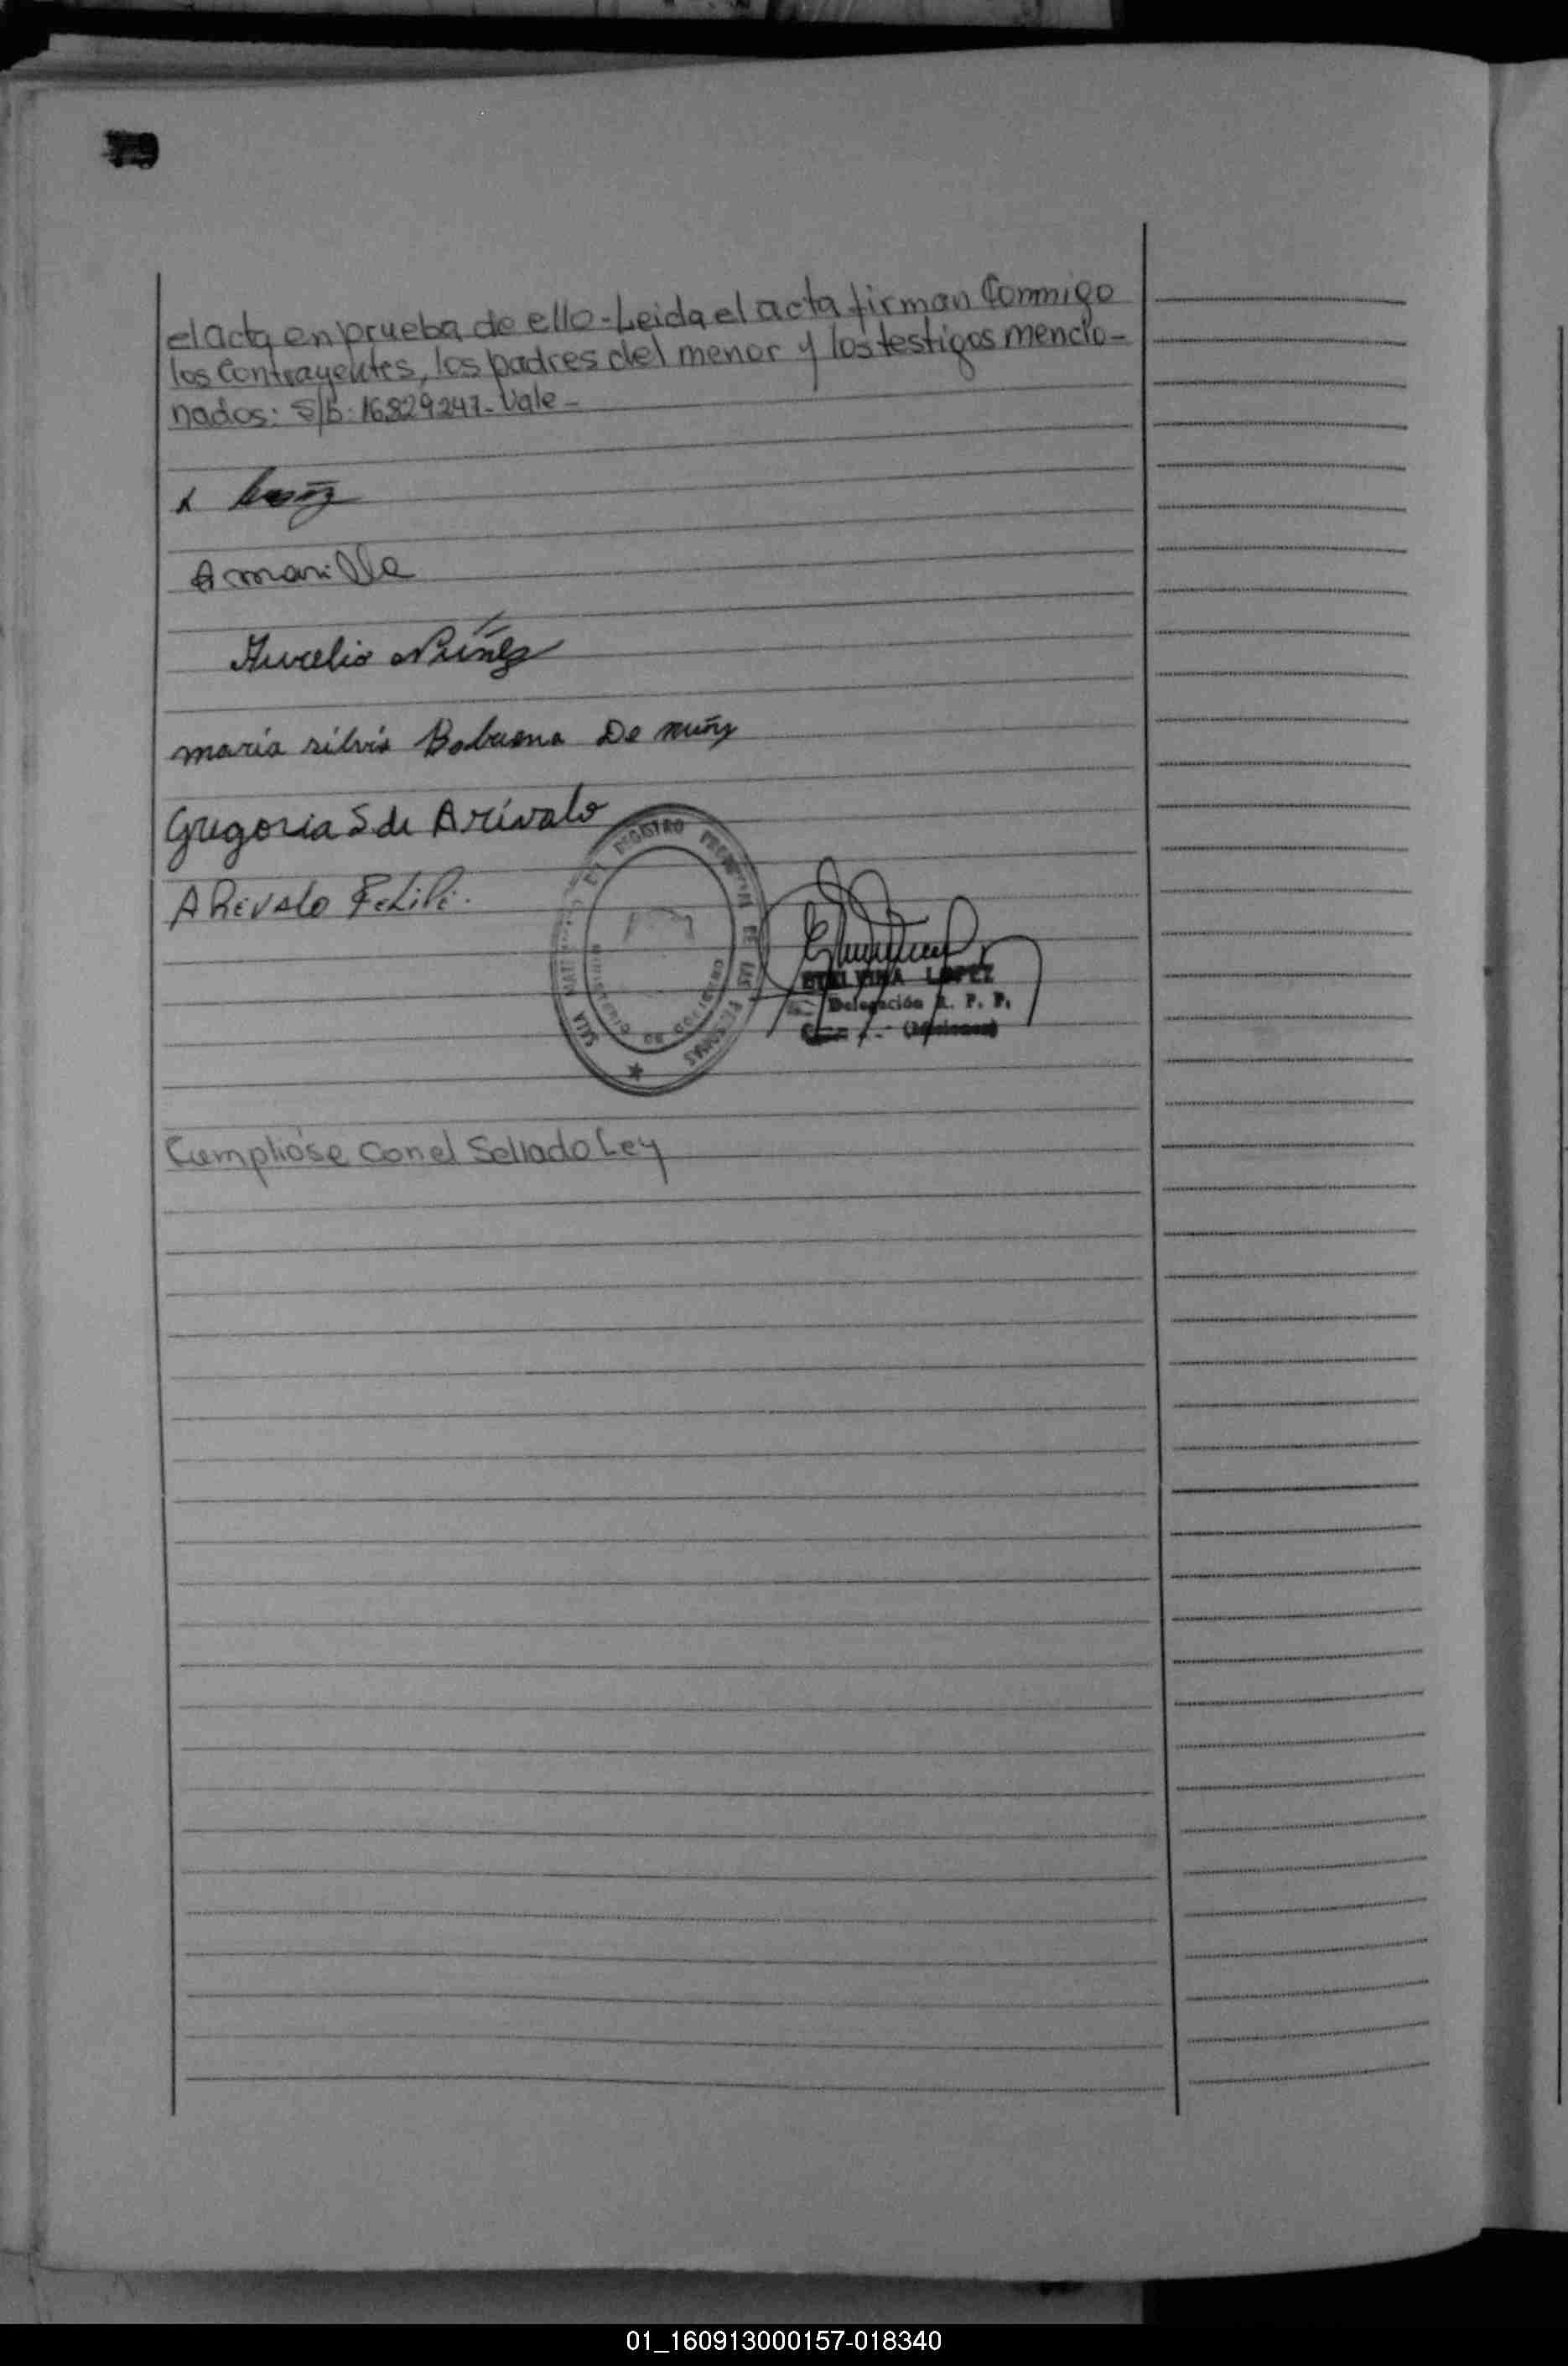 el acta en prueba de ello-Leida el acta firman Conmigo
los Contrayentes, los padres del menor y los testigos mencio-
nados: S/b: 16829247- Vale-
x
Amarilla
Aurelio Núñez
maria silvia Balbuena De nuñz
Gregoria S de Arévalo
AREVALO FELIPE.
REGISTRO PROVINCIAL DE LAS PERSONAS
LOPEZ
Delegación R. P. P.
(Misiones)
Cumplióse con el Sellado Ley
01_160913000157-018340